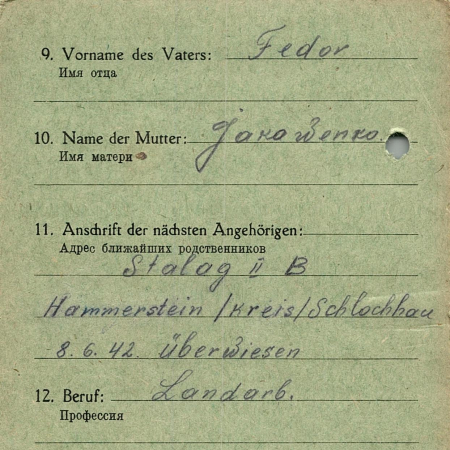 9. Vorname des Vaters: Fedor
Имя отца
10. Name der Mutter: Jarawenko.
Имя матери
11. Anschrift der nächsten Angehörigen:
Адрес ближайших родственников
Stalag II B
Hammerstein /Kreis/Schlochhau
8. 6. 42. überwiesen
12. Beruf: Landarb.
Профессия